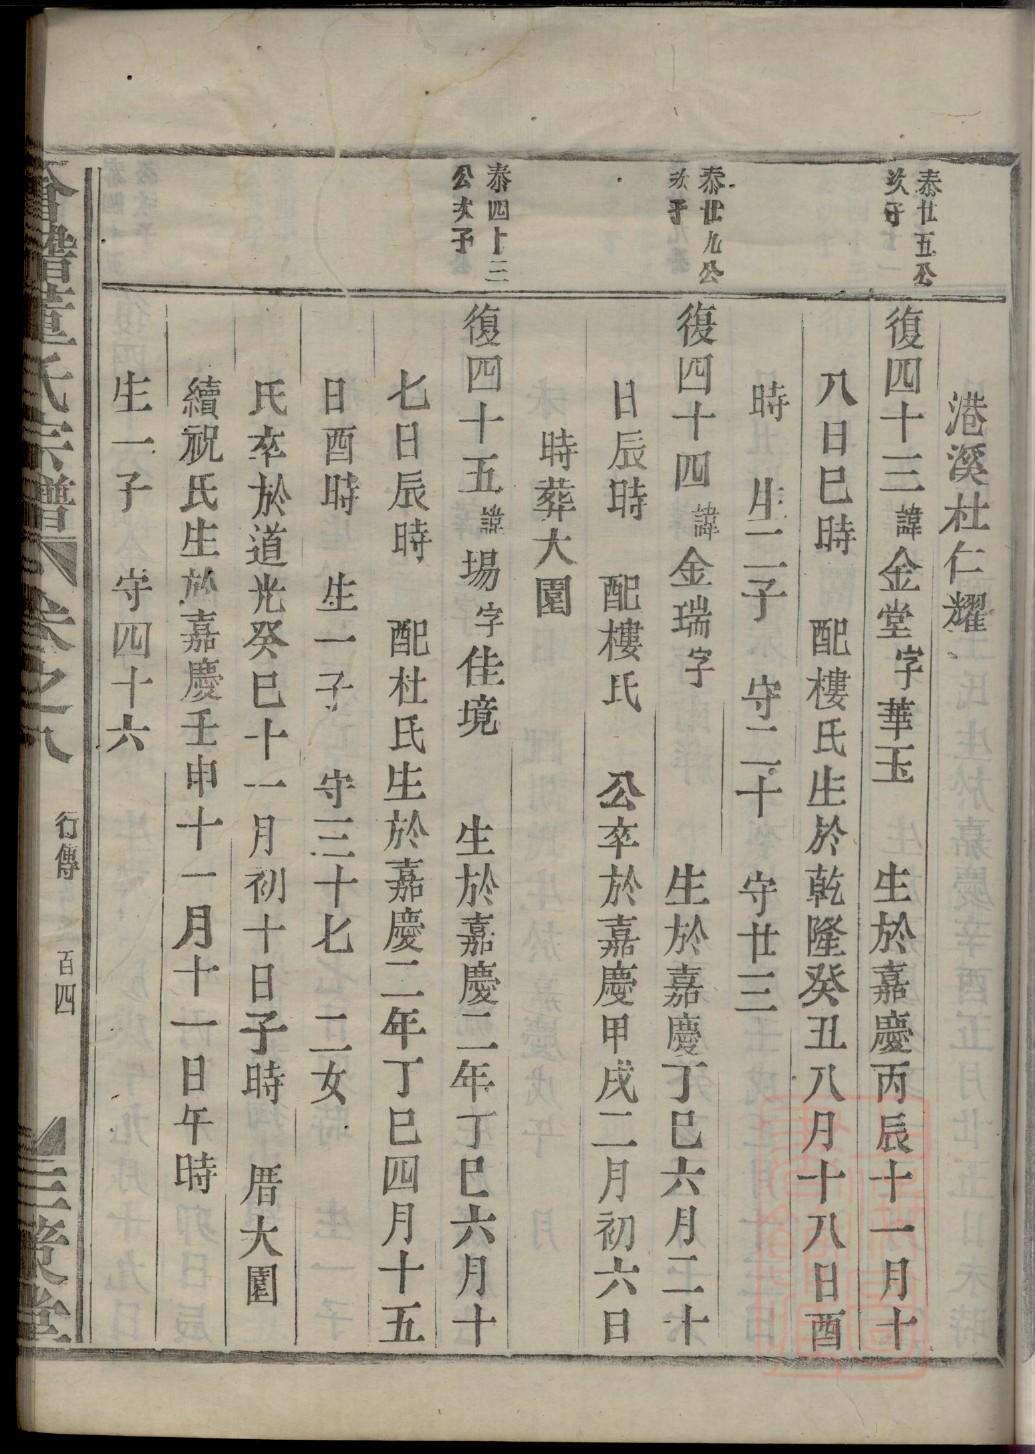 港溪杜仁耀
泰廿五公
次子
復四十三諱金堂字華玉 生於嘉慶丙辰十一月十
八日巳時 配樓氏生於乾隆癸丑八月十八日酉
時 生二子 守二十 守廿三
泰廿九公
次子
復四十四諱金瑞字 生於嘉慶丁巳六月二十
日辰時 配樓氏 公卒於嘉慶甲戌二月初六日
時葬大園
泰四十三
公次子
復四十五諱場字佳境 生於嘉慶二年丁巳六月十
七日辰時 配杜氏生於嘉慶二年丁巳四月十五
日酉時 生一子 守三十七 二女
氏卒於道光癸巳十一月初十日子時 厝大園
續祝氏生於嘉慶壬申十一月十一日午時
生一子 守四十六
董氏宗譜 卷之八 行傳 百四 三策堂